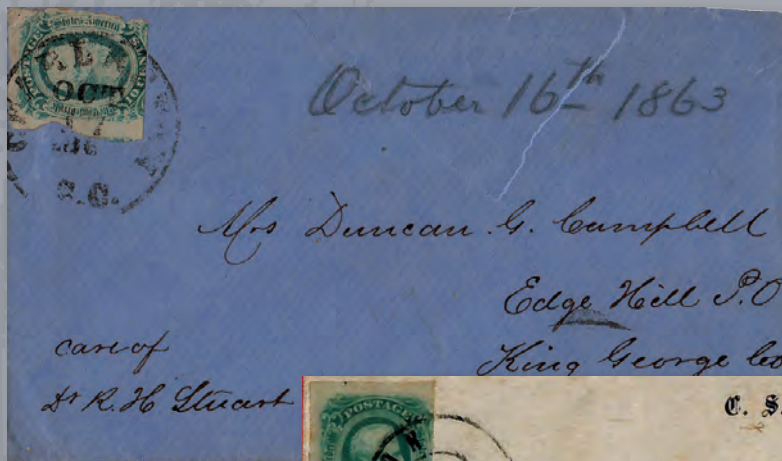 OCT
S.C.
October 16th 1863
Mrs Duncan G. Campbell
Edge Hill P.O
King George Co
care of
Dr R. H. Stuart
POSTAGE
C. S.